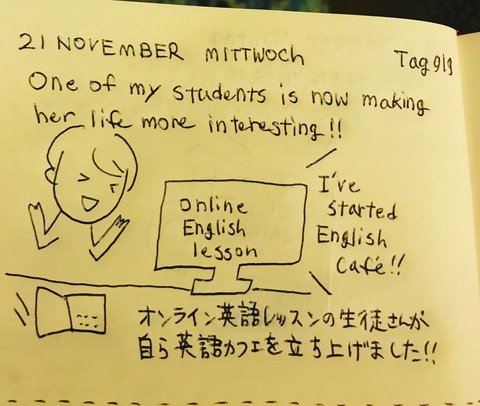 21 NOVEMBER MITTWOCH
Tag 919
One of my students is now making
her life more interesting!!
Online
English
lesson
I've
started
English
Café!!
オンライン英語レッスンの生徒さんが
自ら英語カフェを立ち上げました!!